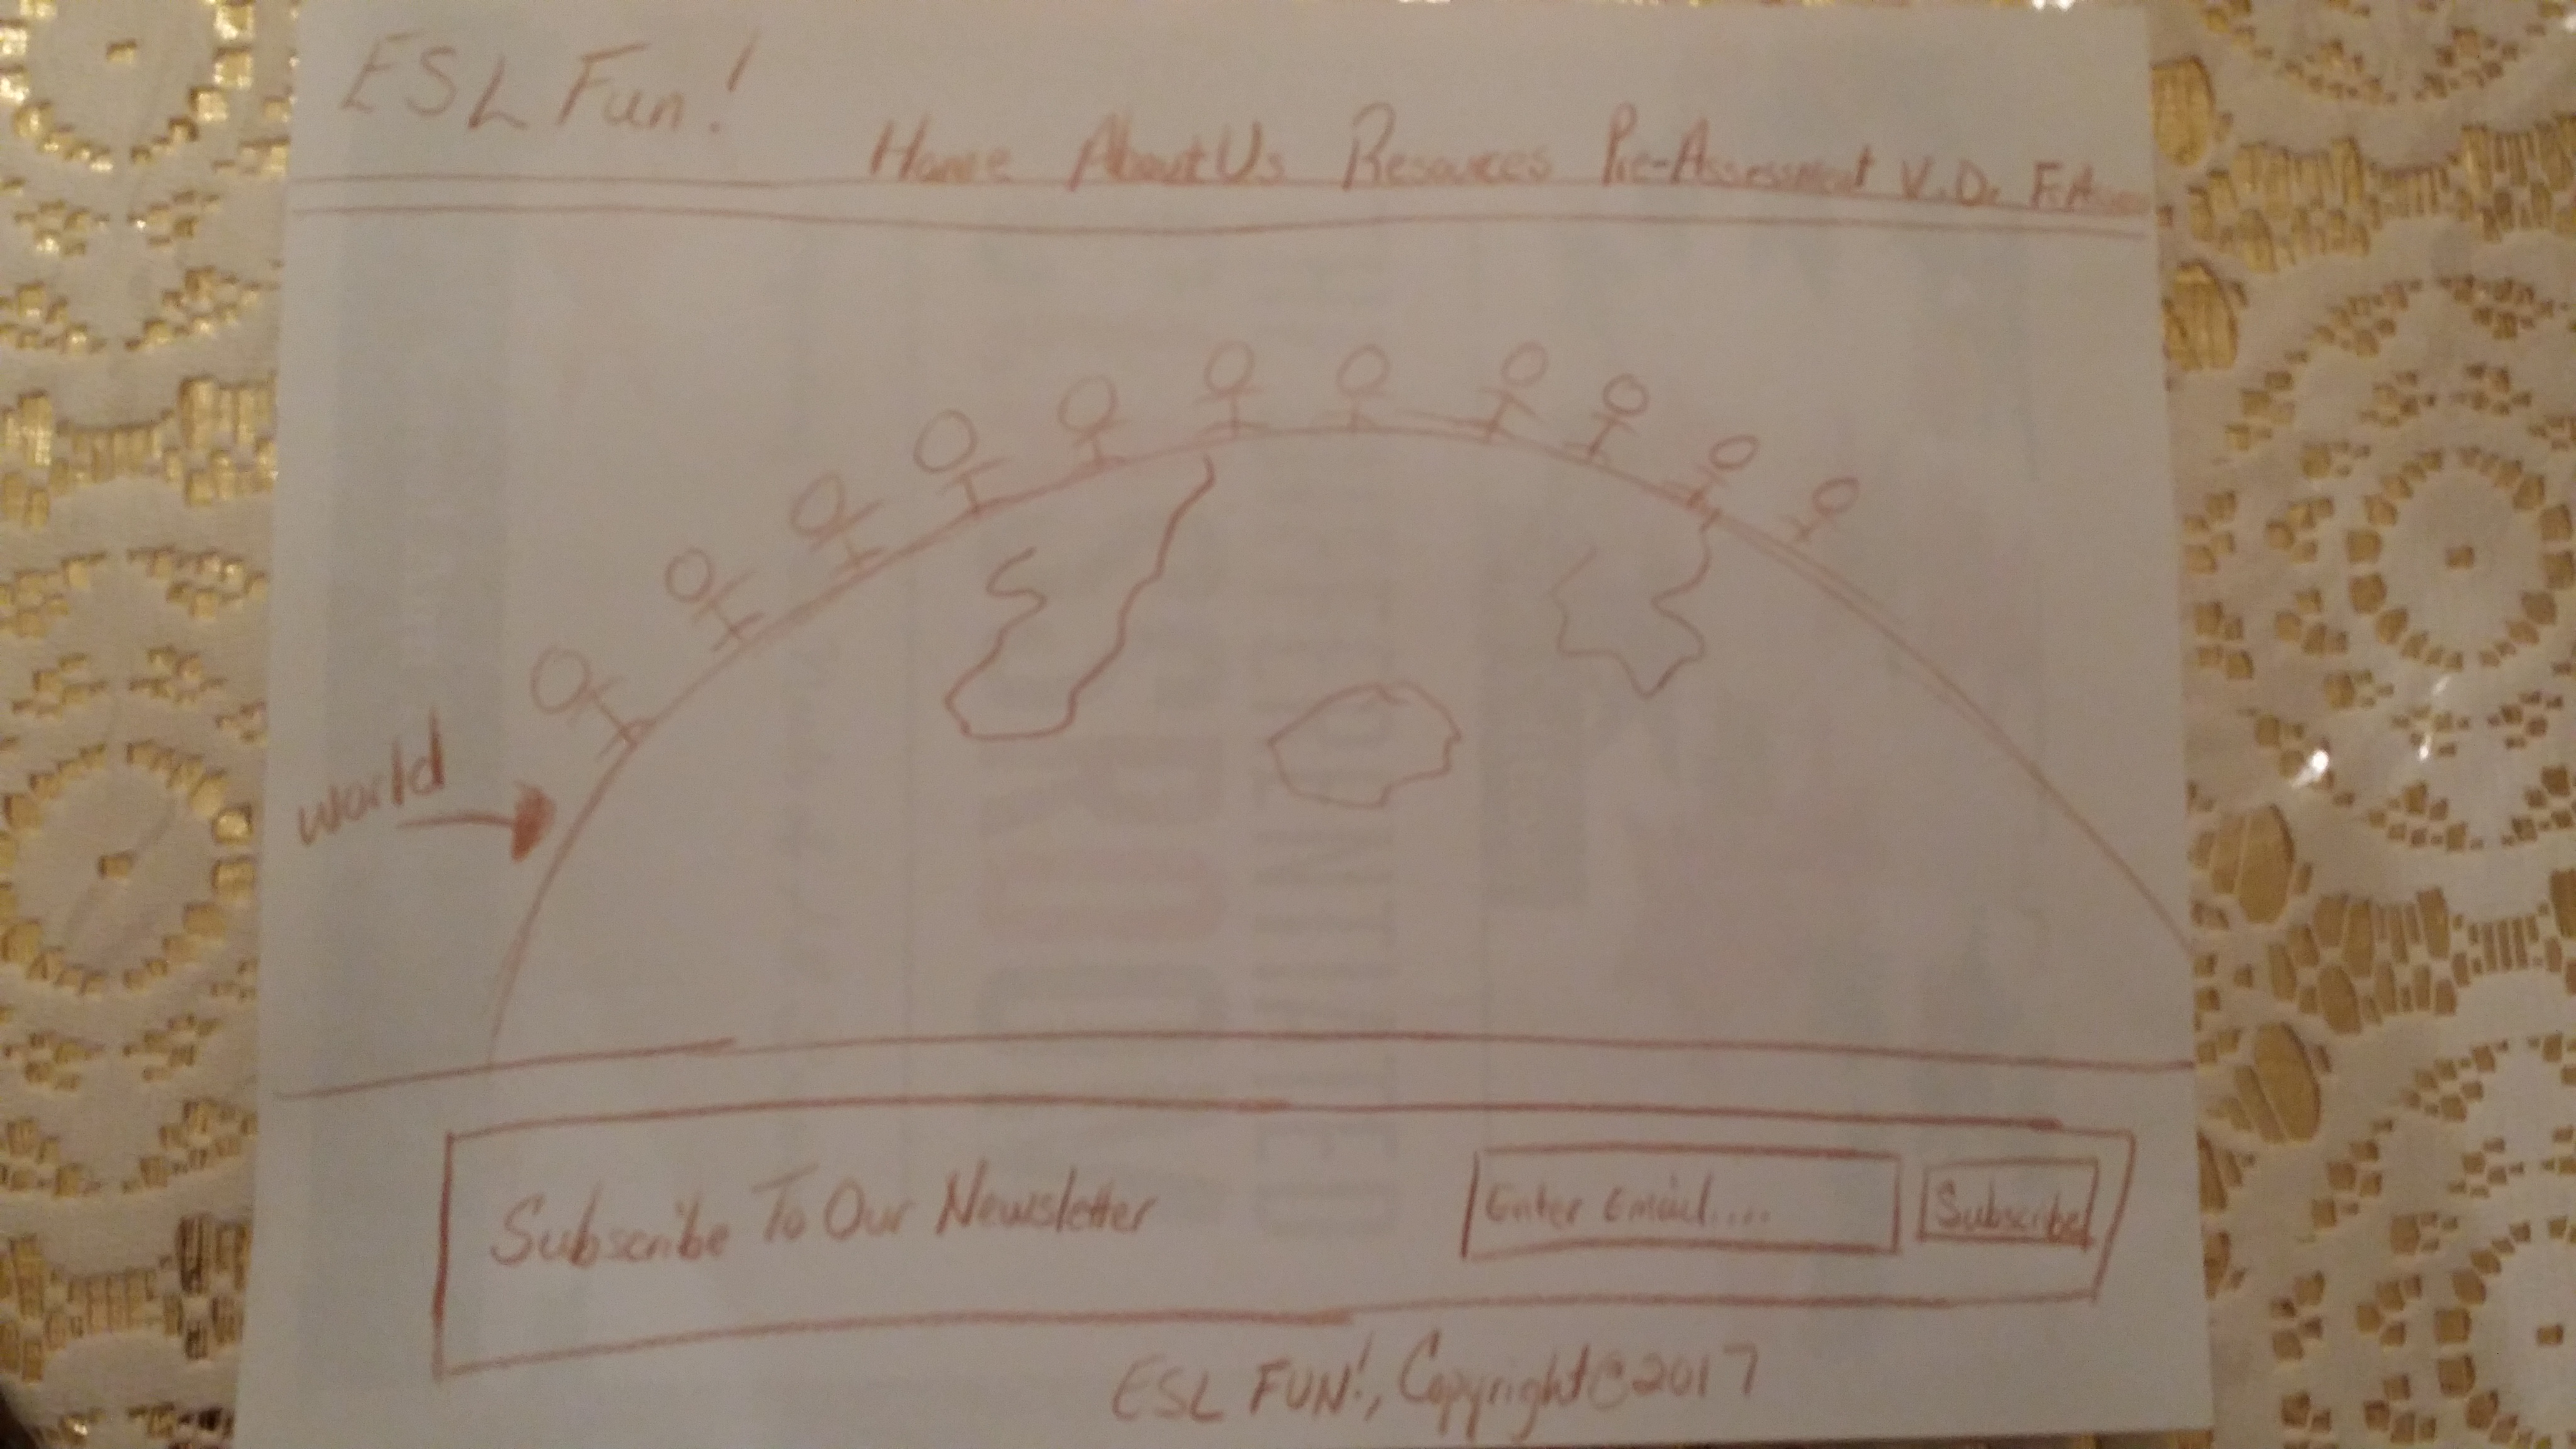 ESL Fun!
Home About Us Resources Pre-Assessment V.D.
world
Subscribe To Our Newsletter
Enter Email....
Subscribe
ESL FUN!, Copyright © 2017